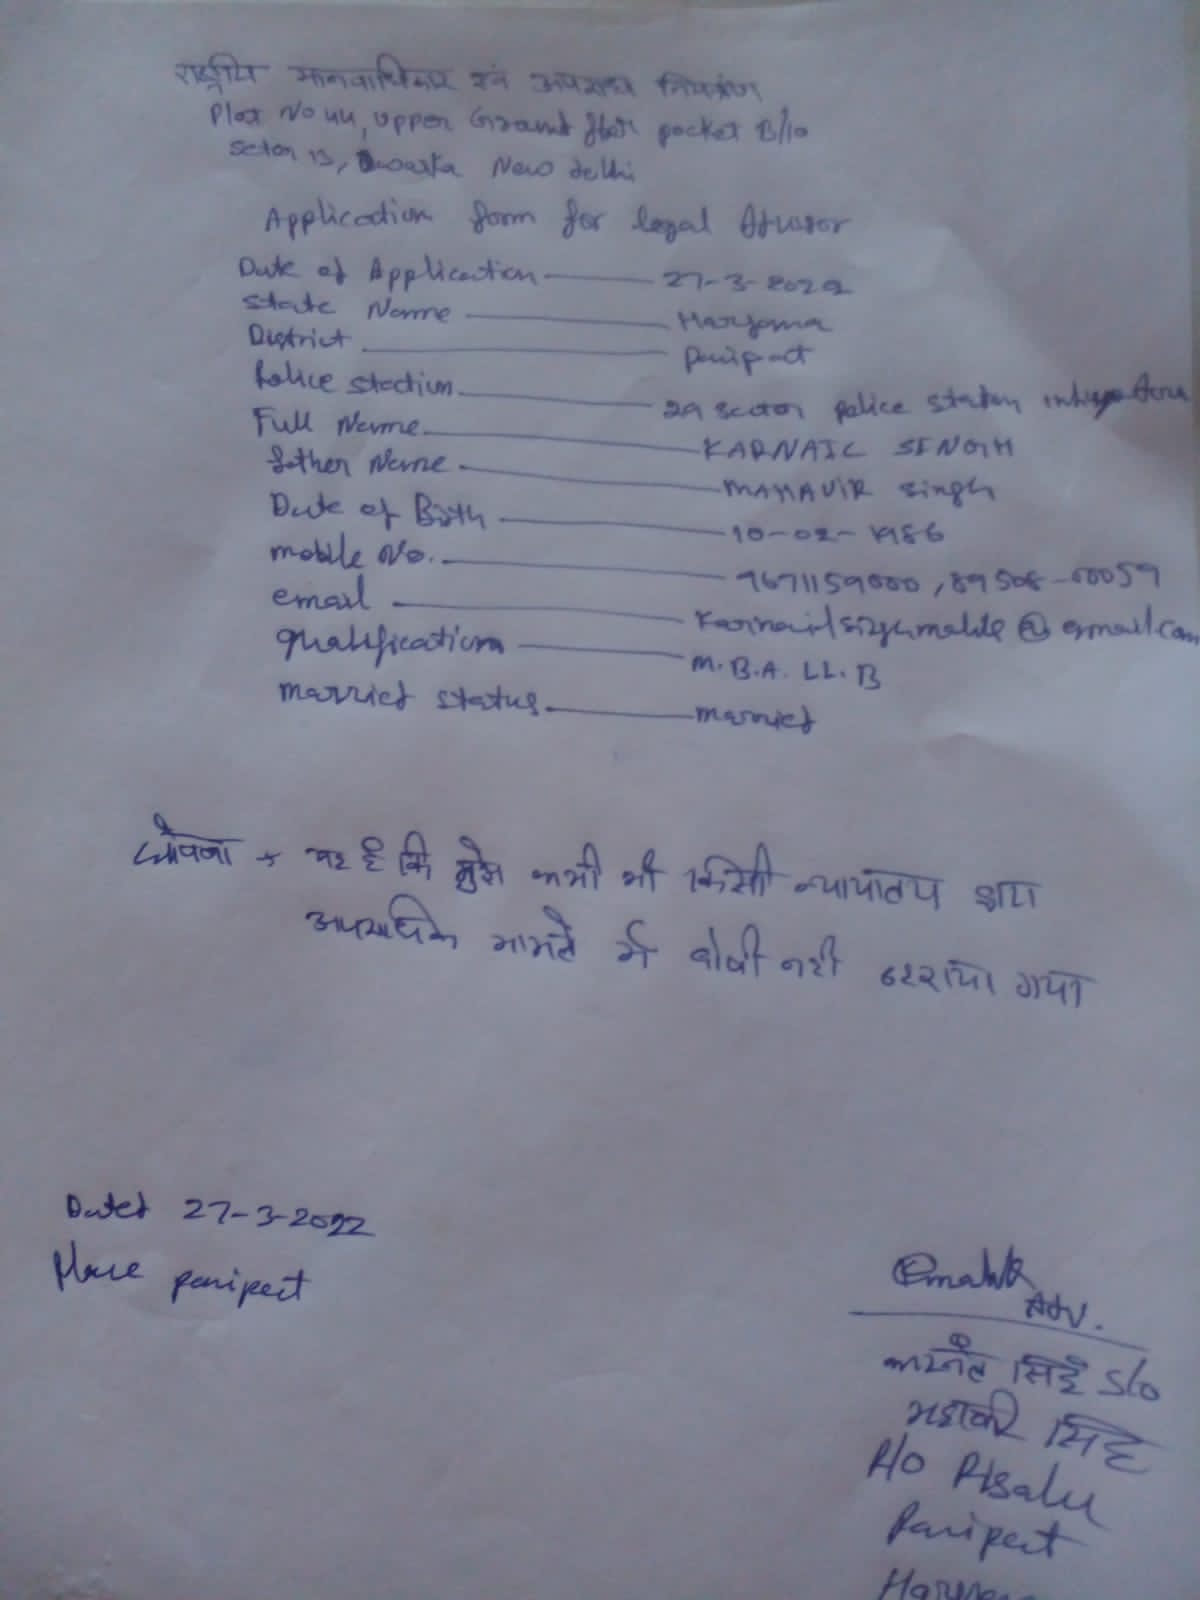 राष्ट्रीय मानवाधिकार एवं अपराध नियंत्रण
Plot No 44, upper Ground floor pocket B/10
Sector 13, Dwarka New delhi
Application form for legal Advisor
Date of Application — 27-3-2022
State Name — Haryana
District — panipat
Police station — 29 sector police station
Full Name — KARNAIL SINGH
father Name — MAHAVIR Singh
Date of Birth — 10-02-1986
mobile No. — 9671159000, 89508-00059
email — @gmail.com
qualification — M.B.A. LL.B
married status — married
घोषणा यह है कि मुझे कभी भी किसी न्यायालय द्वारा
अपराधिक मामले में दोषी नही ठहराया गया
Dated 27-3-2022
Place panipat
Adv.
करनैल सिंह S/o
महावीर सिंह
R/o Risalu
Panipat